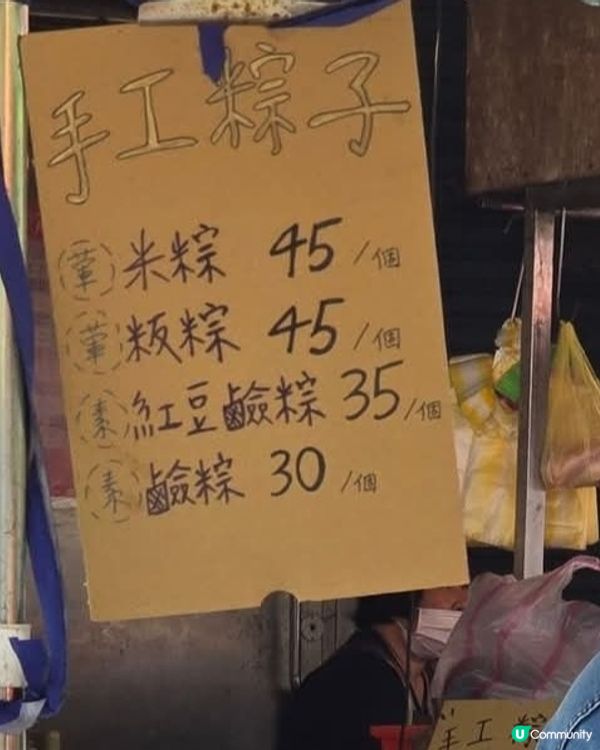 手工粽子
葷 米粽 45/個
葷 粄粽 45/個
素 紅豆鹼粽 35/個
素 鹼粽 30/個
手工粽
U Community